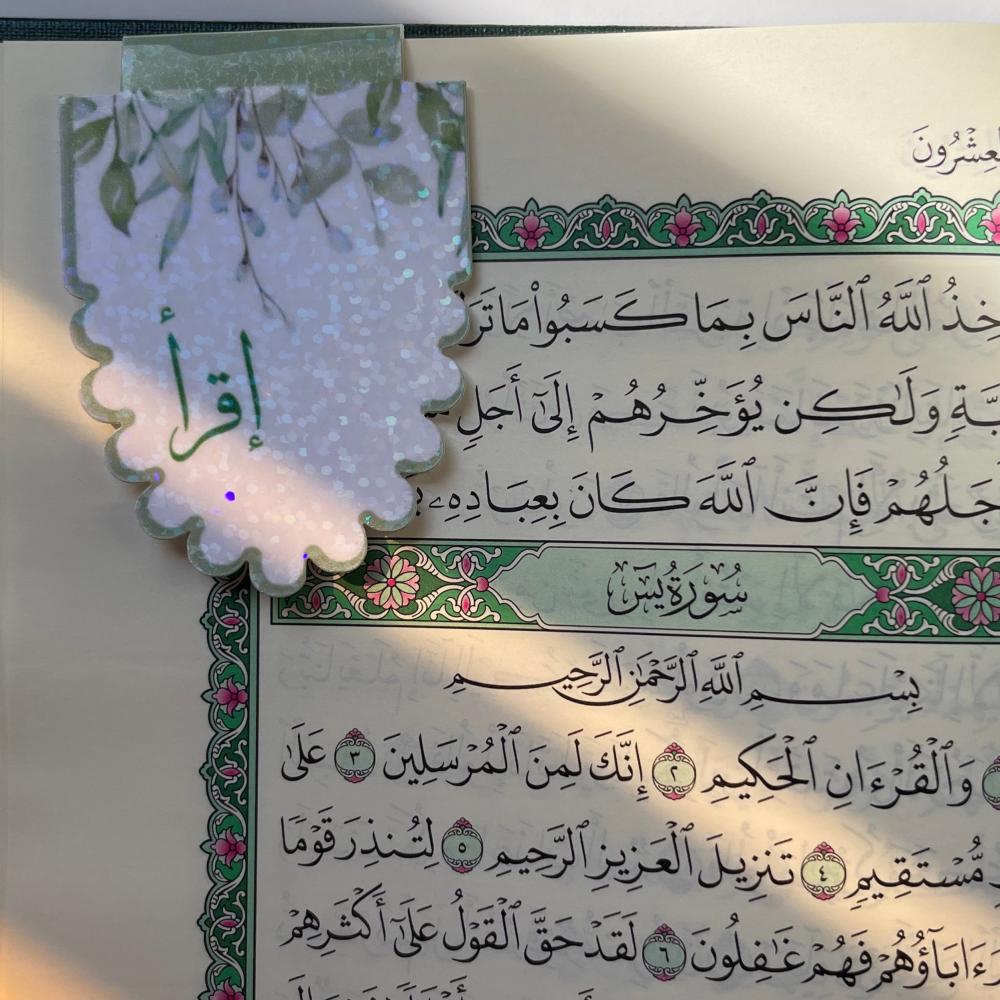 إقرأ
ٱللَّهُ ٱلنَّاسَ بِمَا كَسَبُوا۟ مَا
وَلَٰكِن يُؤَخِّرُهُمْ إِلَىٰٓ أَجَلٍ
فَإِنَّ ٱللَّهَ كَانَ بِعِبَادِهِۦ
سُورَةُ يسٓ
بِسْمِ ٱللَّهِ ٱلرَّحْمَٰنِ ٱلرَّحِيمِ
وَٱلْقُرْءَانِ ٱلْحَكِيمِ ٢ إِنَّكَ لَمِنَ ٱلْمُرْسَلِينَ ٣ عَلَىٰ
مُّسْتَقِيمٍ ٤ تَنزِيلَ ٱلْعَزِيزِ ٱلرَّحِيمِ ٥ لِتُنذِرَ قَوْمًا
ءَابَآؤُهُمْ فَهُمْ غَٰفِلُونَ ٦ لَقَدْ حَقَّ ٱلْقَوْلُ عَلَىٰٓ أَكْثَرِهِمْ